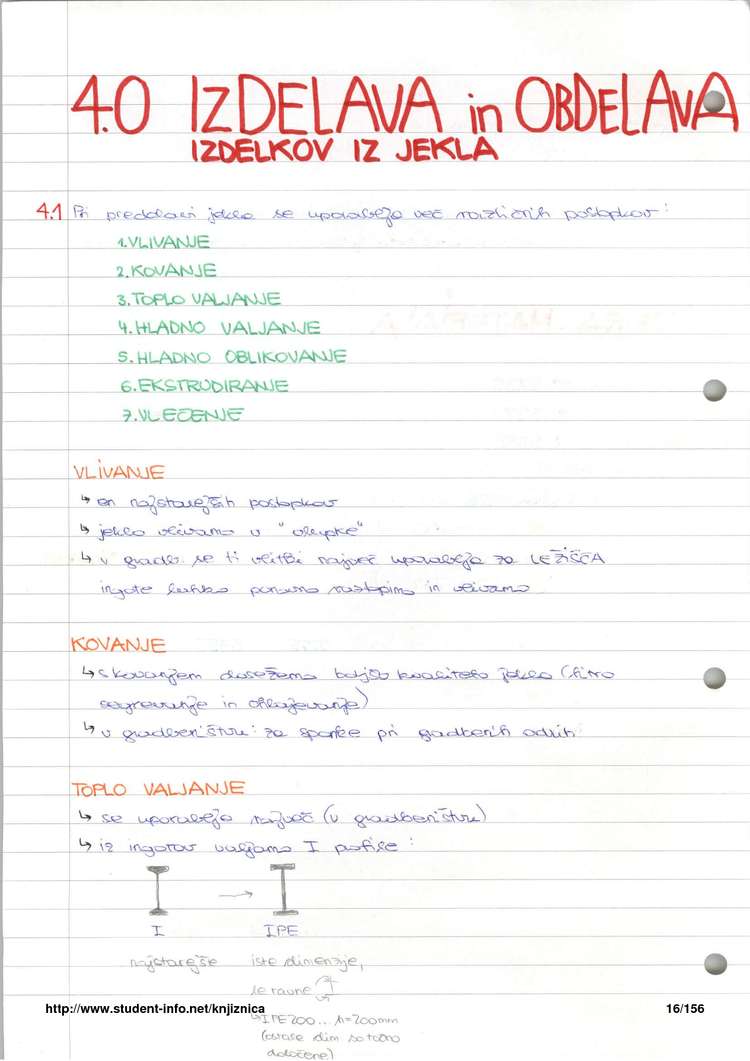 4.0 IZDELAVA in OBDELAVA
IZDELKOV IZ JEKLA
4.1 Pri predelavi jekla se uporablja več različnih postopkov:
1. VLIVANJE
2. KOVANJE
3. TOPLO VALJANJE
4. HLADNO VALJANJE
5. HLADNO OBLIKOVANJE
6. EKSTRUDIRANJE
7. VLEČENJE
VLIVANJE
↳ en najstarejših postopkov
↳ jeklo vlivamo v "olepke"
↳ v gradb. se ti ulitki največ uporabljajo za LEŽIŠČA
ingote lahko ponovno nastopimo in vlivamo
KOVANJE
↳ s kovanjem dosežemo boljšo kvaliteto jekla (hitro
segrevanje in ohlajevanje)
↳ v gradbeništvu: za sponke pri gradbenih odrih
TOPLO VALJANJE
↳ se uporablja največ (v gradbeništvu)
↳ iz ingotov valjamo I profile:
I → IPE
najstarejše iste dimenzije,
le ravne
↳ IPE 200 ... h=200mm
(ostale dim so točno
določene)
http://www.student-info.net/knjiznica 16/156